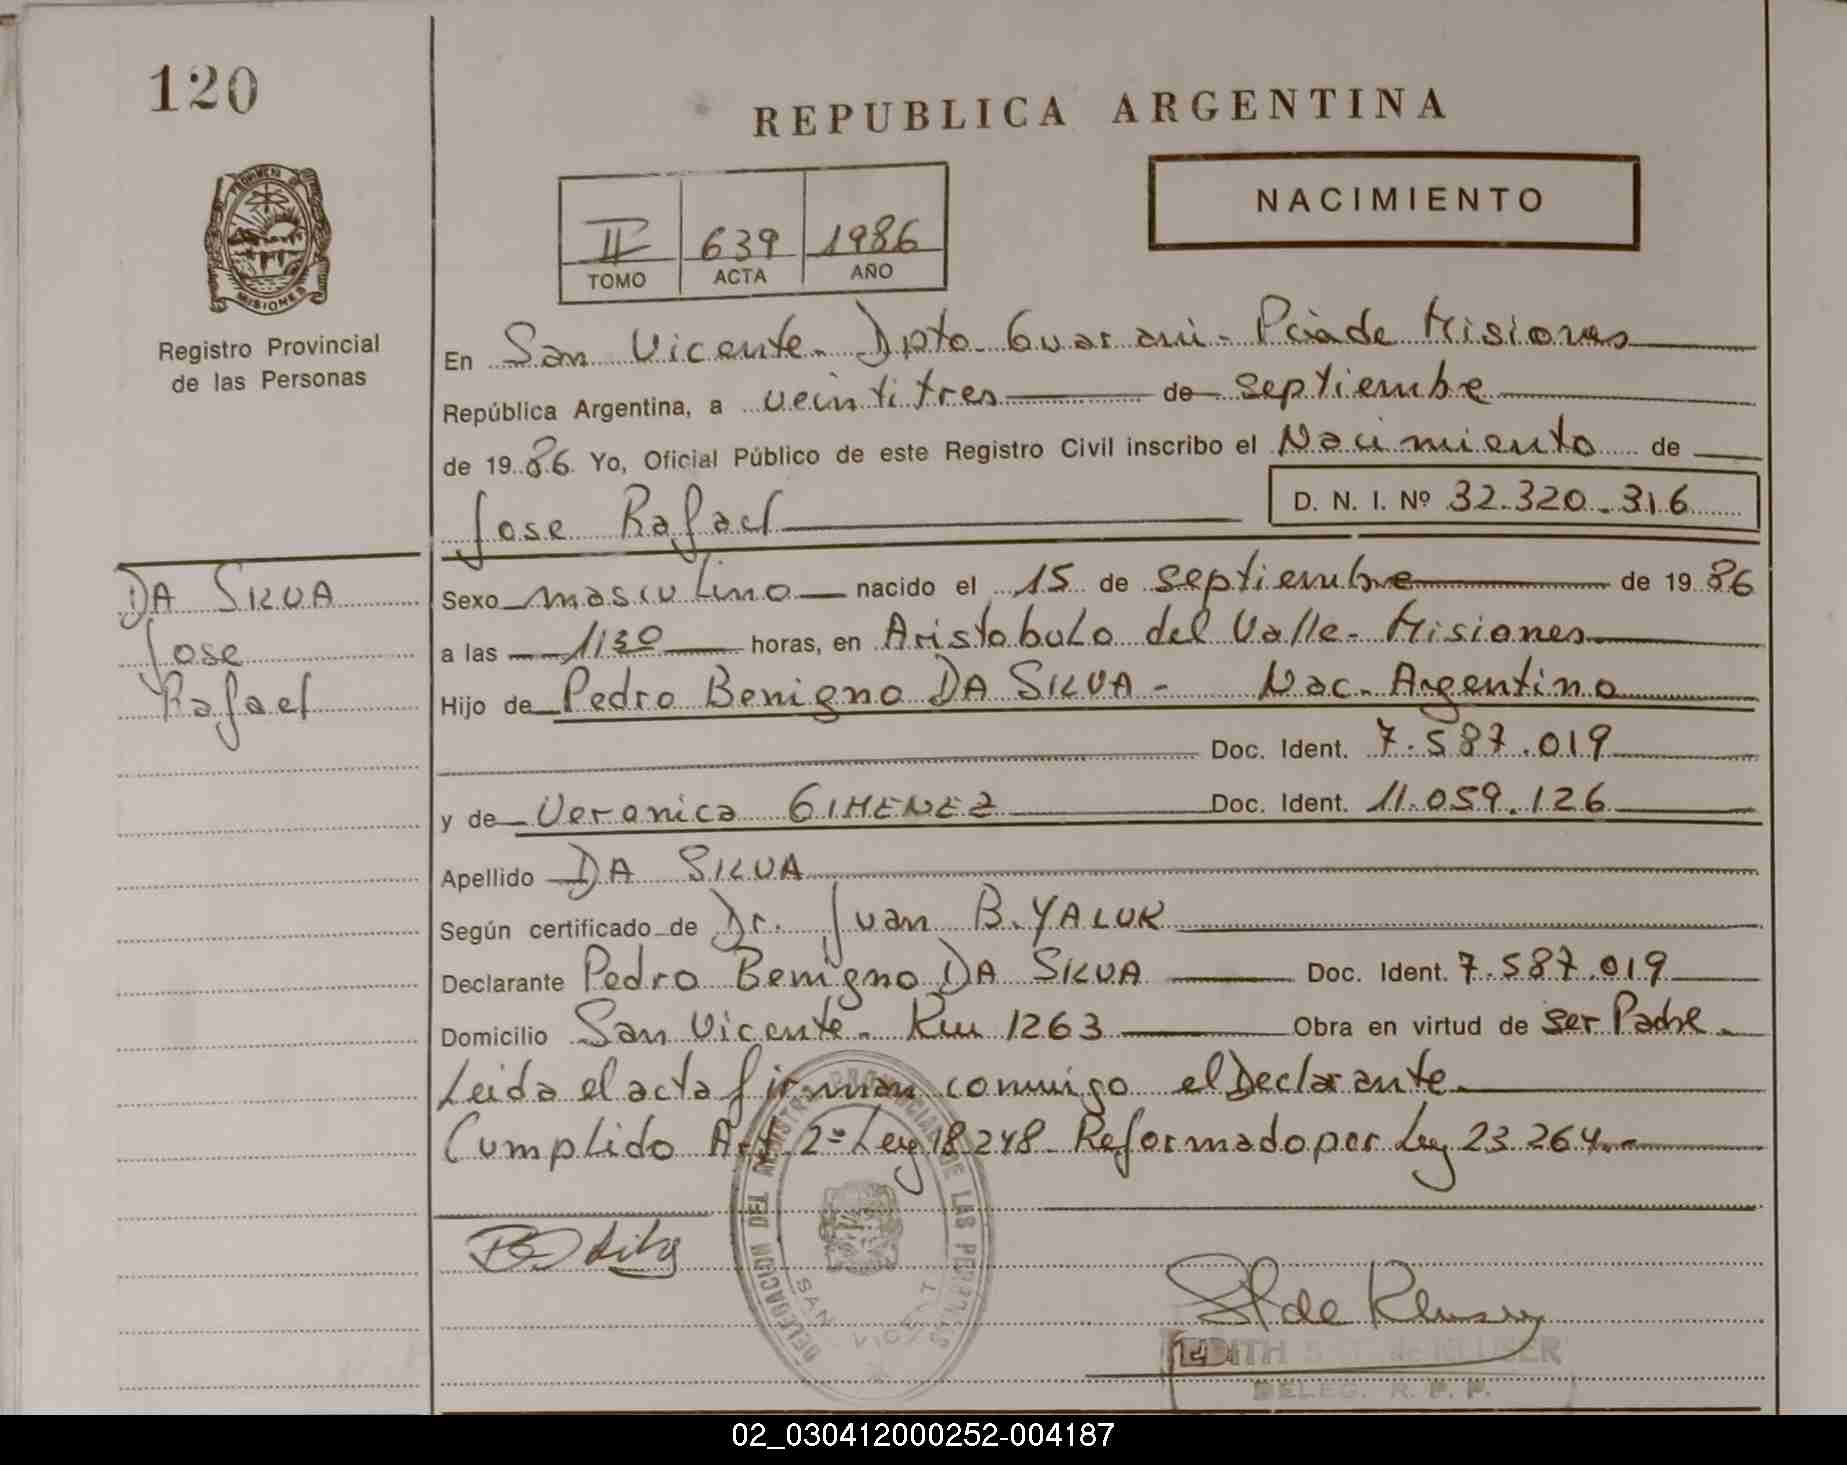 120
REPUBLICA ARGENTINA
PROVINCIA DE
MISIONES
Registro Provincial
de las Personas
NACIMIENTO
II 639 1986
TOMO ACTA AÑO
En San Vicente - Dpto Guarani - Pcia de Misiones
República Argentina, a veintitres de septiembre
de 19 86 Yo, Oficial Público de este Registro Civil inscribo el Nacimiento de
Jose Rafael D. N. I. Nº 32.320.316
DA SILVA
Jose
Rafael
Sexo masculino nacido el 15 de septiembre de 19 86
a las 1130 horas, en Aristobulo del Valle - Misiones
Hijo de Pedro Benigno DA SILVA - Nac. Argentino
Doc. Ident. 7.587.019
y de Veronica GIMENEZ Doc. Ident. 11.059.126
Apellido DA SILVA
Según certificado de Dr. Juan B. YALUK
Declarante Pedro Benigno DA SILVA Doc. Ident. 7.587.019
Domicilio San Vicente - Km 1263 Obra en virtud de ser Padre.
Leida el acta firman conmigo el Declarante.
Cumplido Art 2º Ley 18248 Reformado por Ley 23264.-
DELEGACION DEL REGISTRO PROVINCIAL DE LAS PERSONAS
SAN VICENTE
EDITH de KLUSER
DELEG. R. P. P.
02_030412000252-004187